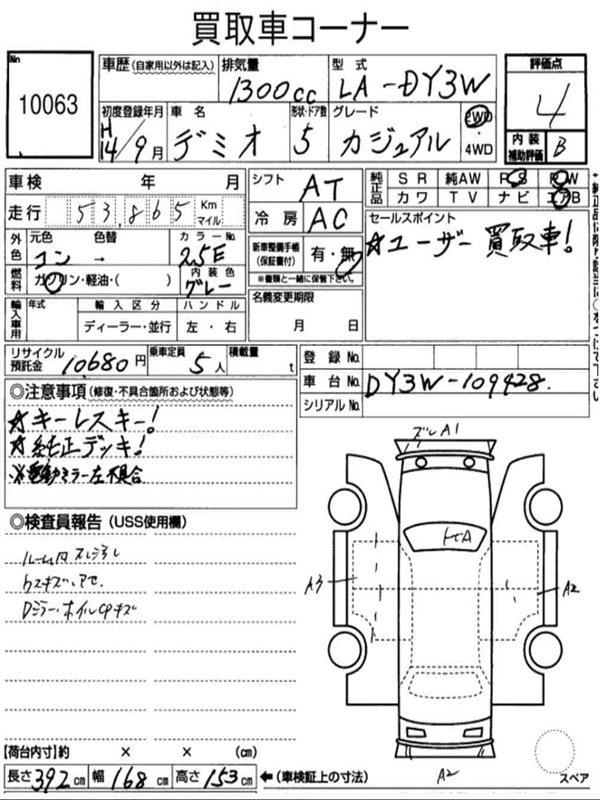 買取車コーナー
No.
10063
車歴 (自家用以外は記入)
排気量
1300cc
型式
LA-DY3W
評価点
4
初度登録年月
H14/9月
車名
デミオ
形状・ドア数
5
グレード
カジュアル
2WD
・4WD
内装
補助評価
B
車検 年 月
シフト
AT
純正品
SR 純AW PS PW
カワ TV ナビ エアB
走行 53,865 Km
マイル
冷房
AC
セールスポイント
☆ユーザー買取車!
外色
元色 色替
コン →
カラーNo.
25E
新車整備手帳
(保証書付)
有・無
※書類と一緒に保管下さい。
燃料
ガソリン・軽油・( )
内装色
グレー
名義変更期限
月 日
輸入車用
年式
輸入区分
ハンドル
ディーラー・並行
左・右
リサイクル
預託金
10,680円
乗車定員
5人
積載量
t
登録No.
車台No.
DY3W-109428.
シリアルNo.
◎注意事項 (修復・不具合箇所および状態等)
☆キーレスキー!
☆純正デッキ!
※電動ミラー左不具合
◎検査員報告 (USS使用欄)
ズレA1
トビA
A3
A2
A2
【荷台内寸】約 × × (cm)
長さ392cm 幅168cm 高さ153cm
←(車検証上の寸法)
スペア